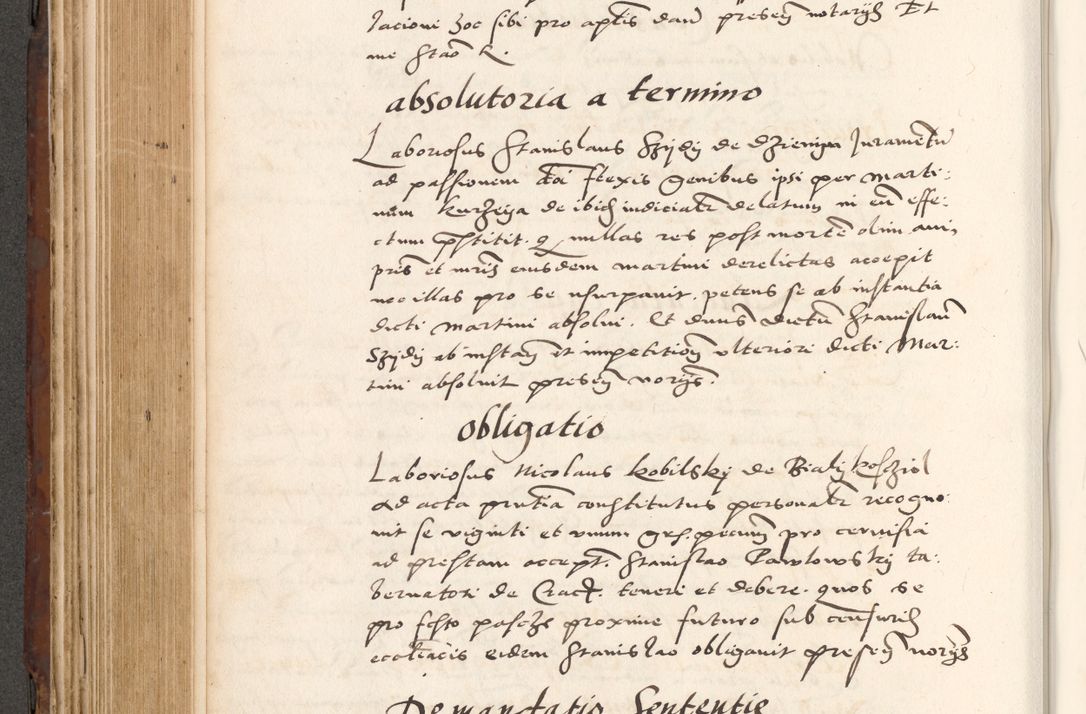 lacioni hoc sibi pro aptis dan presen notariis Et
me Stao K.
absolutoria a termino
Laboriosus Stanislaus Szijdij de dzieniga Juramentu
ad passionem dni flexis Genibus ipsi per marti:
num kurzeija de ibid iudicialr delatum in eu effe:
ctum pstitit. q nullas res post morte olim avi,
pris et mris eiusdem martini derelictas accepit
nec illas pro se usurpavit. petens se ab instantia
dicti martini absolvi. Et dnus dictu Stanislau
Szijdij ab instan et impetition ulteriori dicti Mar:
tini absolvit presen noriis.
obligatio
Laboriosus Nicolaus kobilskij de Bialijkoscziol
ad acta pntia constitutus personalr recogno:
vit se viginti et unum grs. pecun pro cervisia
ad prestam accept. Stanislao Pawlowskij ta:
bernatori de Crac. teneri et debere. quos se
pro festo pasche proxime futuro sub censuris
ecclesticis eidem Stanislao obligavit presen noriis
Demandatio Sententie